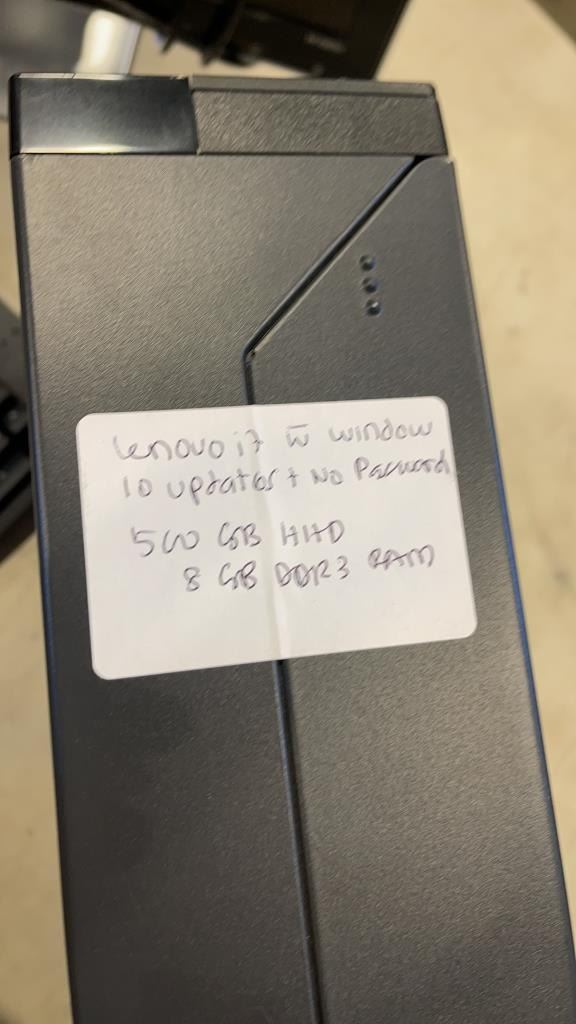 Lenovo i7 w̅ window
10 updates + No Password
500 GB HHD
8 GB DDR3 RAM